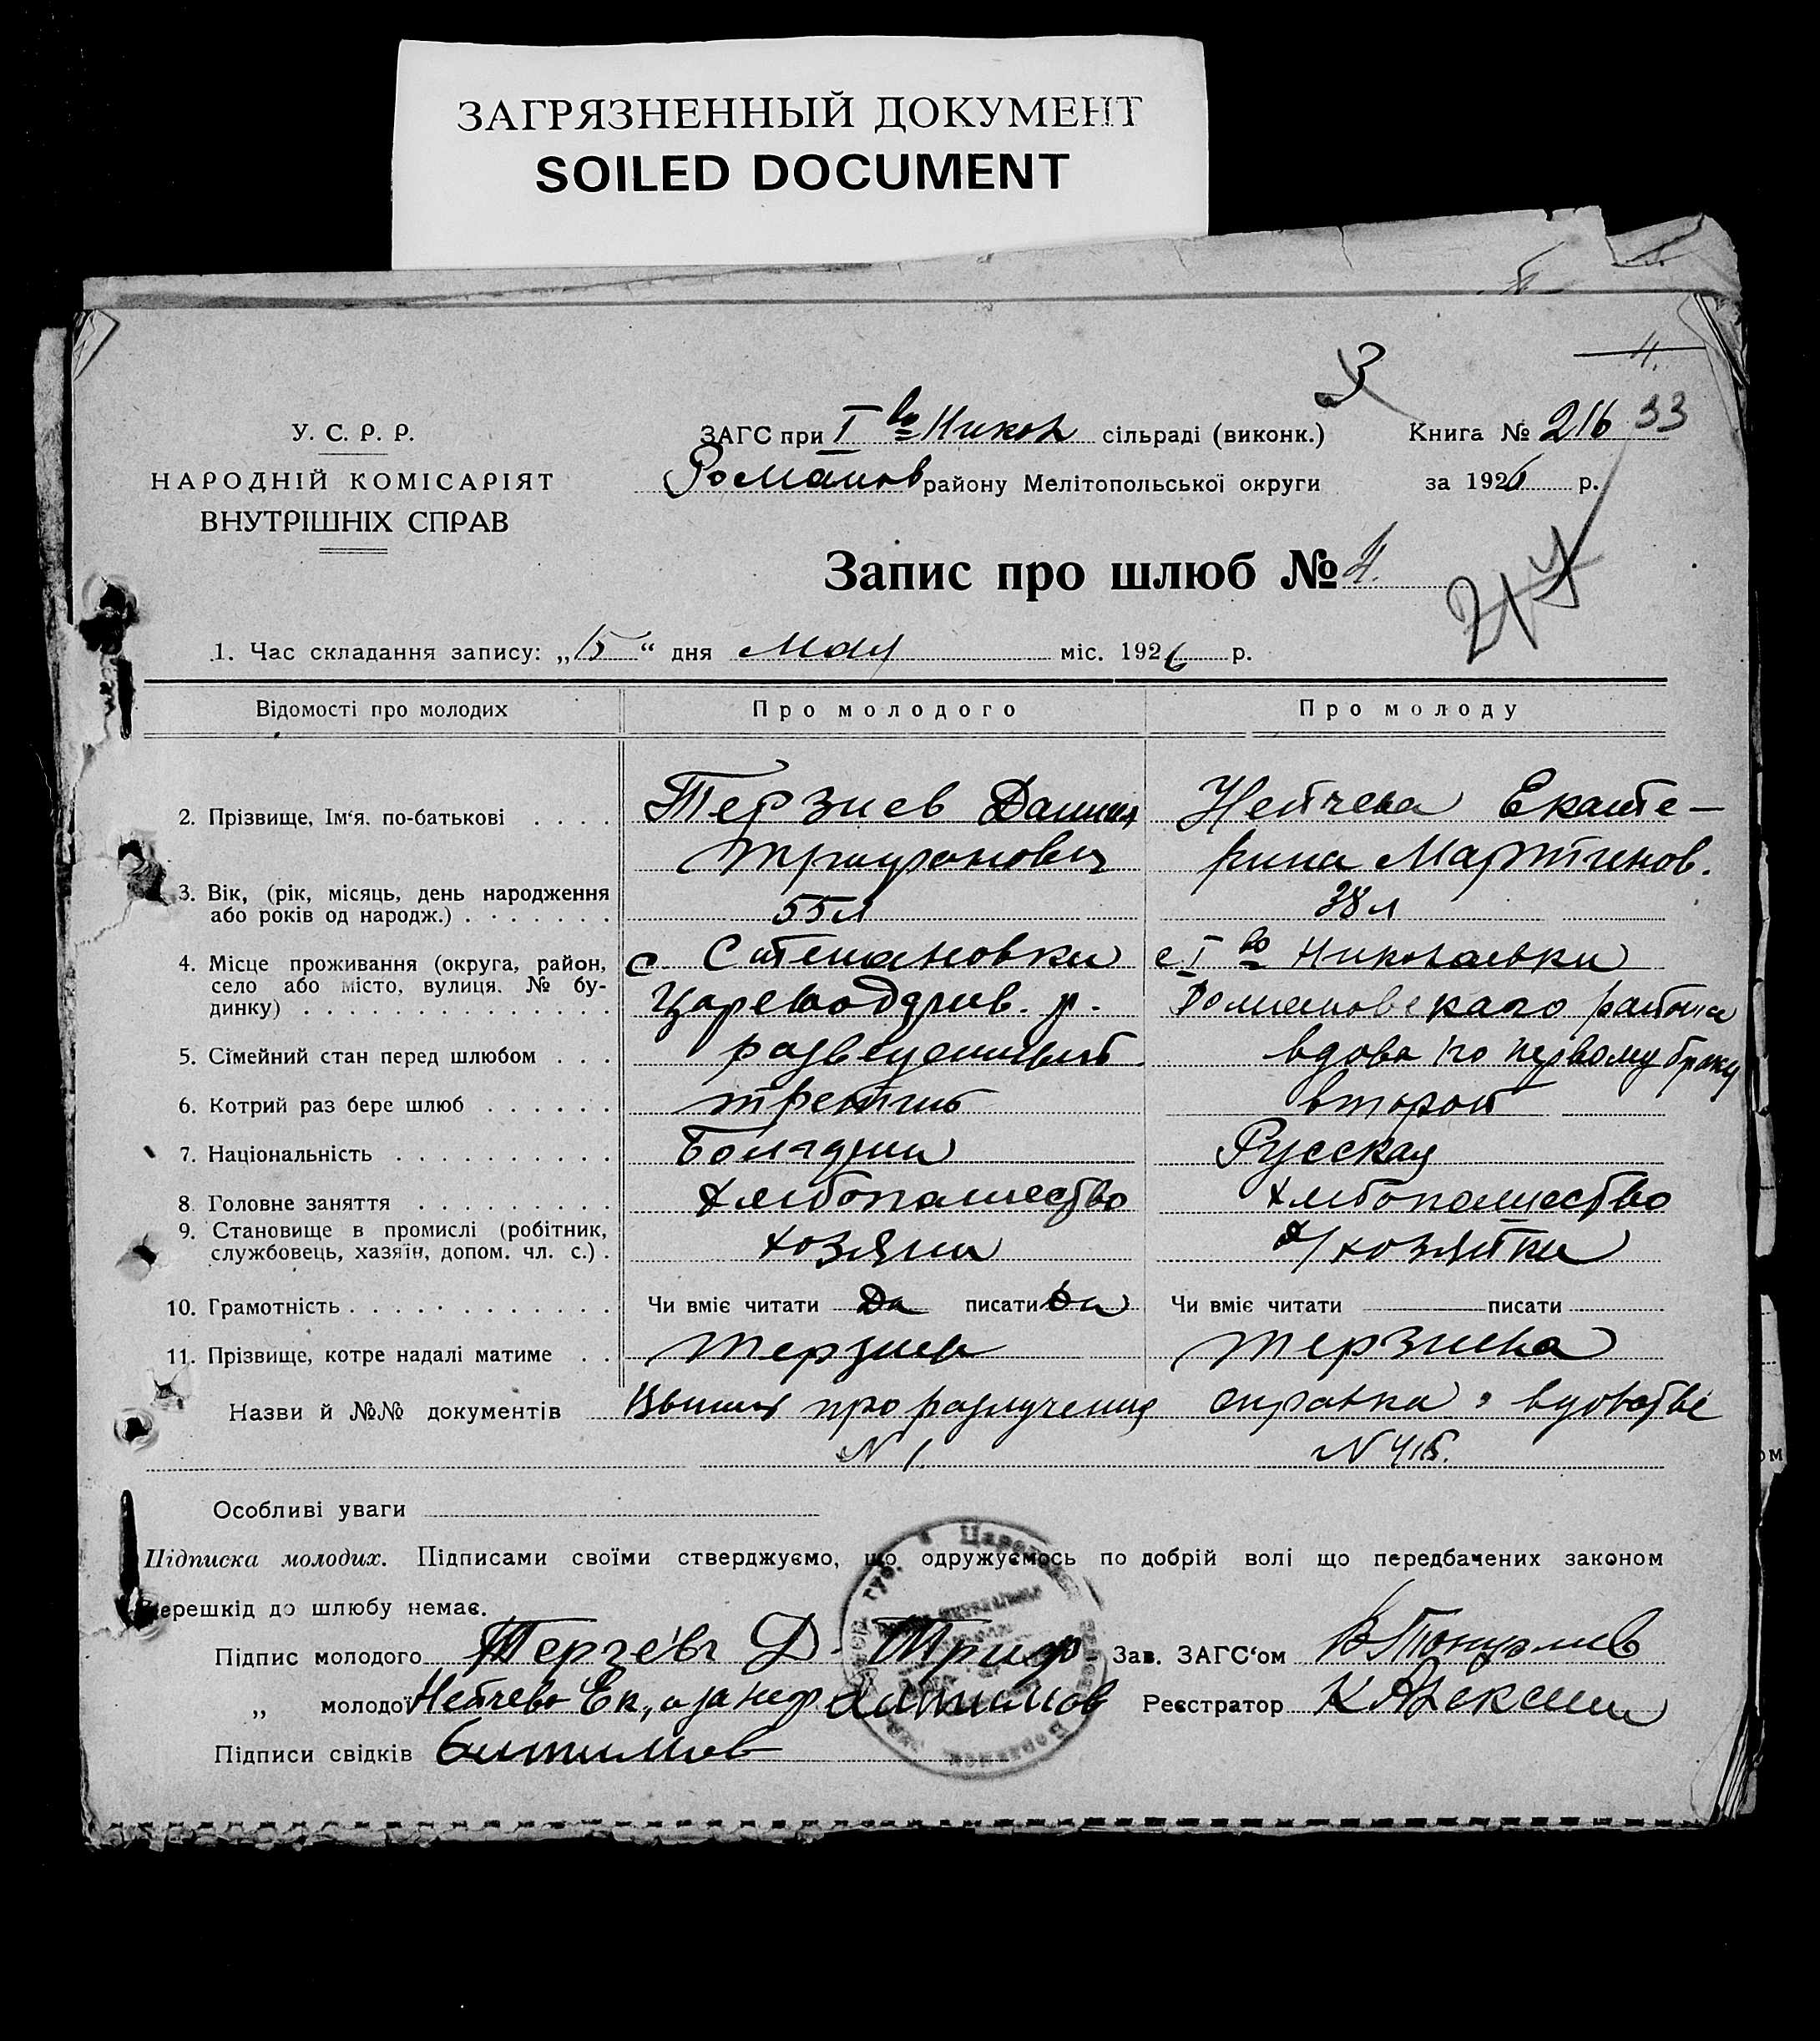 ЗАГРЯЗНЕННЫЙ ДОКУМЕНТ
SOILED DOCUMENT
4.
3
У. С. Р. Р.
НАРОДНІЙ КОМІСАРІЯТ
ВНУТРІШНІХ СПРАВ
ЗАГС при I во Никол сільраді (виконк.) Книга № 216 33
Романов району Мелітопольської округи за 1926 р.
Запис про шлюб № 4.
217
1. Час складання запису: „15“ дня Мая міс. 1926 р.
Відомості про молодих Про молодого Про молоду
2. Прізвище, Ім‘я. по-батькові Терзиев Даниил Нейчева Екате-
Трифонович рина Мартинов.
3. Вік, (рік, місяць, день народження
або років од народж.) 55 л 38 л
4. Місце проживання (округа, район, с Степановки с I во Николаевки
село або місто, вулиця. № бу-
динку) Цареводяров. р. Романовскаго района
5. Сімейний стан перед шлюбом разведенный вдова по первому браку
6. Котрий раз бере шлюб третий второй
7. Національність Болгарин Русская
8 Головне заняття хлебопашество хлебопашество
9. Становище в промислі (робітник,
службовець, хазяїн, допом. чл. с.) хозяин д/хозяйки
10. Грамотність Чи вміє читати Да писати Да Чи вміє читати писати
11. Прізвище, котре надалі матиме Терзиев Терзиева
Назви й №№ документів про разлучения справка о вдовстве
N 1 N 415.
Особливі уваги
Підписка молодих. Підписами своїми стверджуємо, що одружуємось по добрій волі що передбачених законом
перешкід до шлюбу немає.
Підпис молодого Терзевъ Д. Триф Зав. ЗАГС‘ом
„ молодої Нейчева Ек, а за негр Реєстратор
Підписи свідків